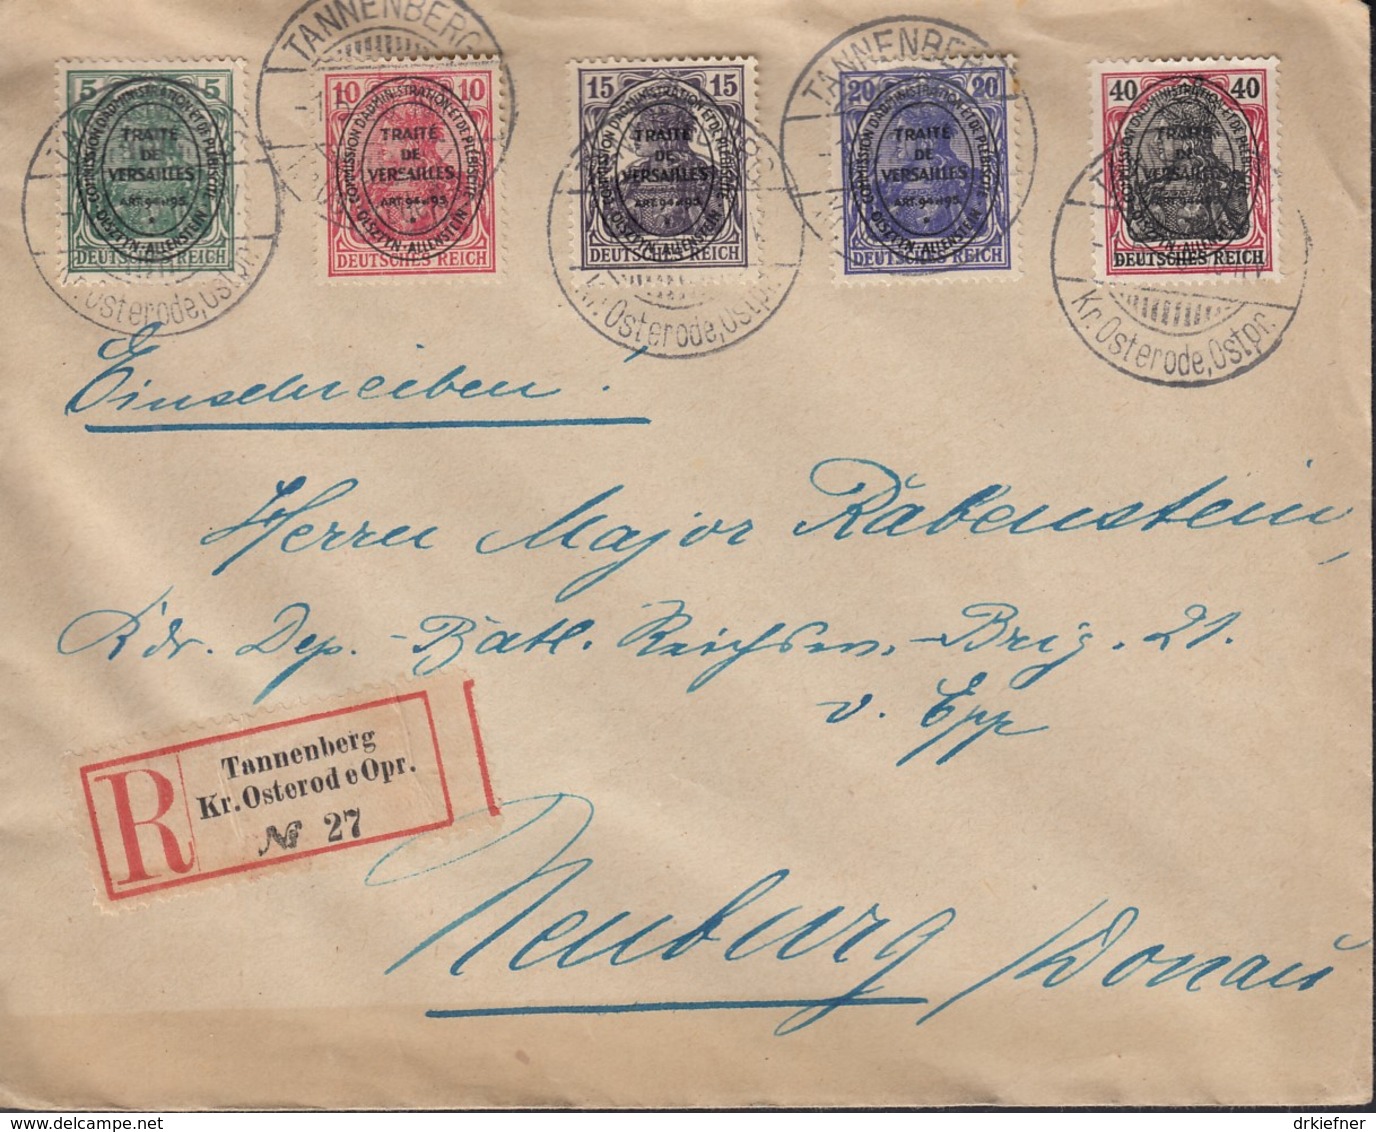 5 5
COMMISSION D'ADMINISTRATION ET DE PLÉBISCITE
TRAITÉ
DE
VERSAILLES
ART. 94 et 95
OLSZTYN - ALLENSTEIN
DEUTSCHES REICH
10 10
COMMISSION D'ADMINISTRATION ET DE PLÉBISCITE
TRAITÉ
DE
VERSAILLES
ART. 94 et 95
OLSZTYN - ALLENSTEIN
DEUTSCHES REICH
15 15
COMMISSION D'ADMINISTRATION ET DE PLÉBISCITE
TRAITÉ
DE
VERSAILLES
ART. 94 et 95
OLSZTYN - ALLENSTEIN
DEUTSCHES REICH
20 20
COMMISSION D'ADMINISTRATION ET DE PLÉBISCITE
TRAITÉ
DE
VERSAILLES
ART. 94 et 95
OLSZTYN - ALLENSTEIN
DEUTSCHES REICH
40 40
COMMISSION D'ADMINISTRATION ET DE PLÉBISCITE
TRAITÉ
DE
VERSAILLES
ART. 94 et 95
OLSZTYN - ALLENSTEIN
DEUTSCHES REICH
Kr. Osterode, Ostpr.
TANNENBERG
Kr. Osterode, Ostpr.
TANNENBERG
Kr. Osterode, Ostpr.
Einschreiben!
Herrn Major Rabenstein,
Kdr. Dep.-Batl. Reichsw.-Brig. 21.
v. Epp
R
Tannenberg
Kr. Osterode Opr.
№ 27
Neuburg /Donau
drkiefner